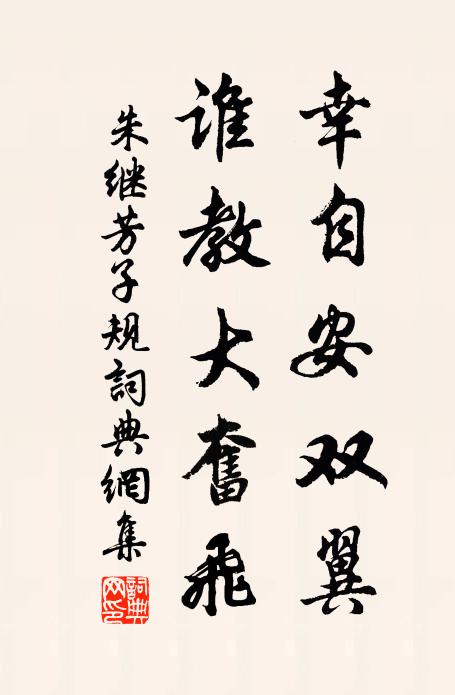 幸自安双翼
谁教大奮飛
朱继芳子規詞典網集
詞典网印